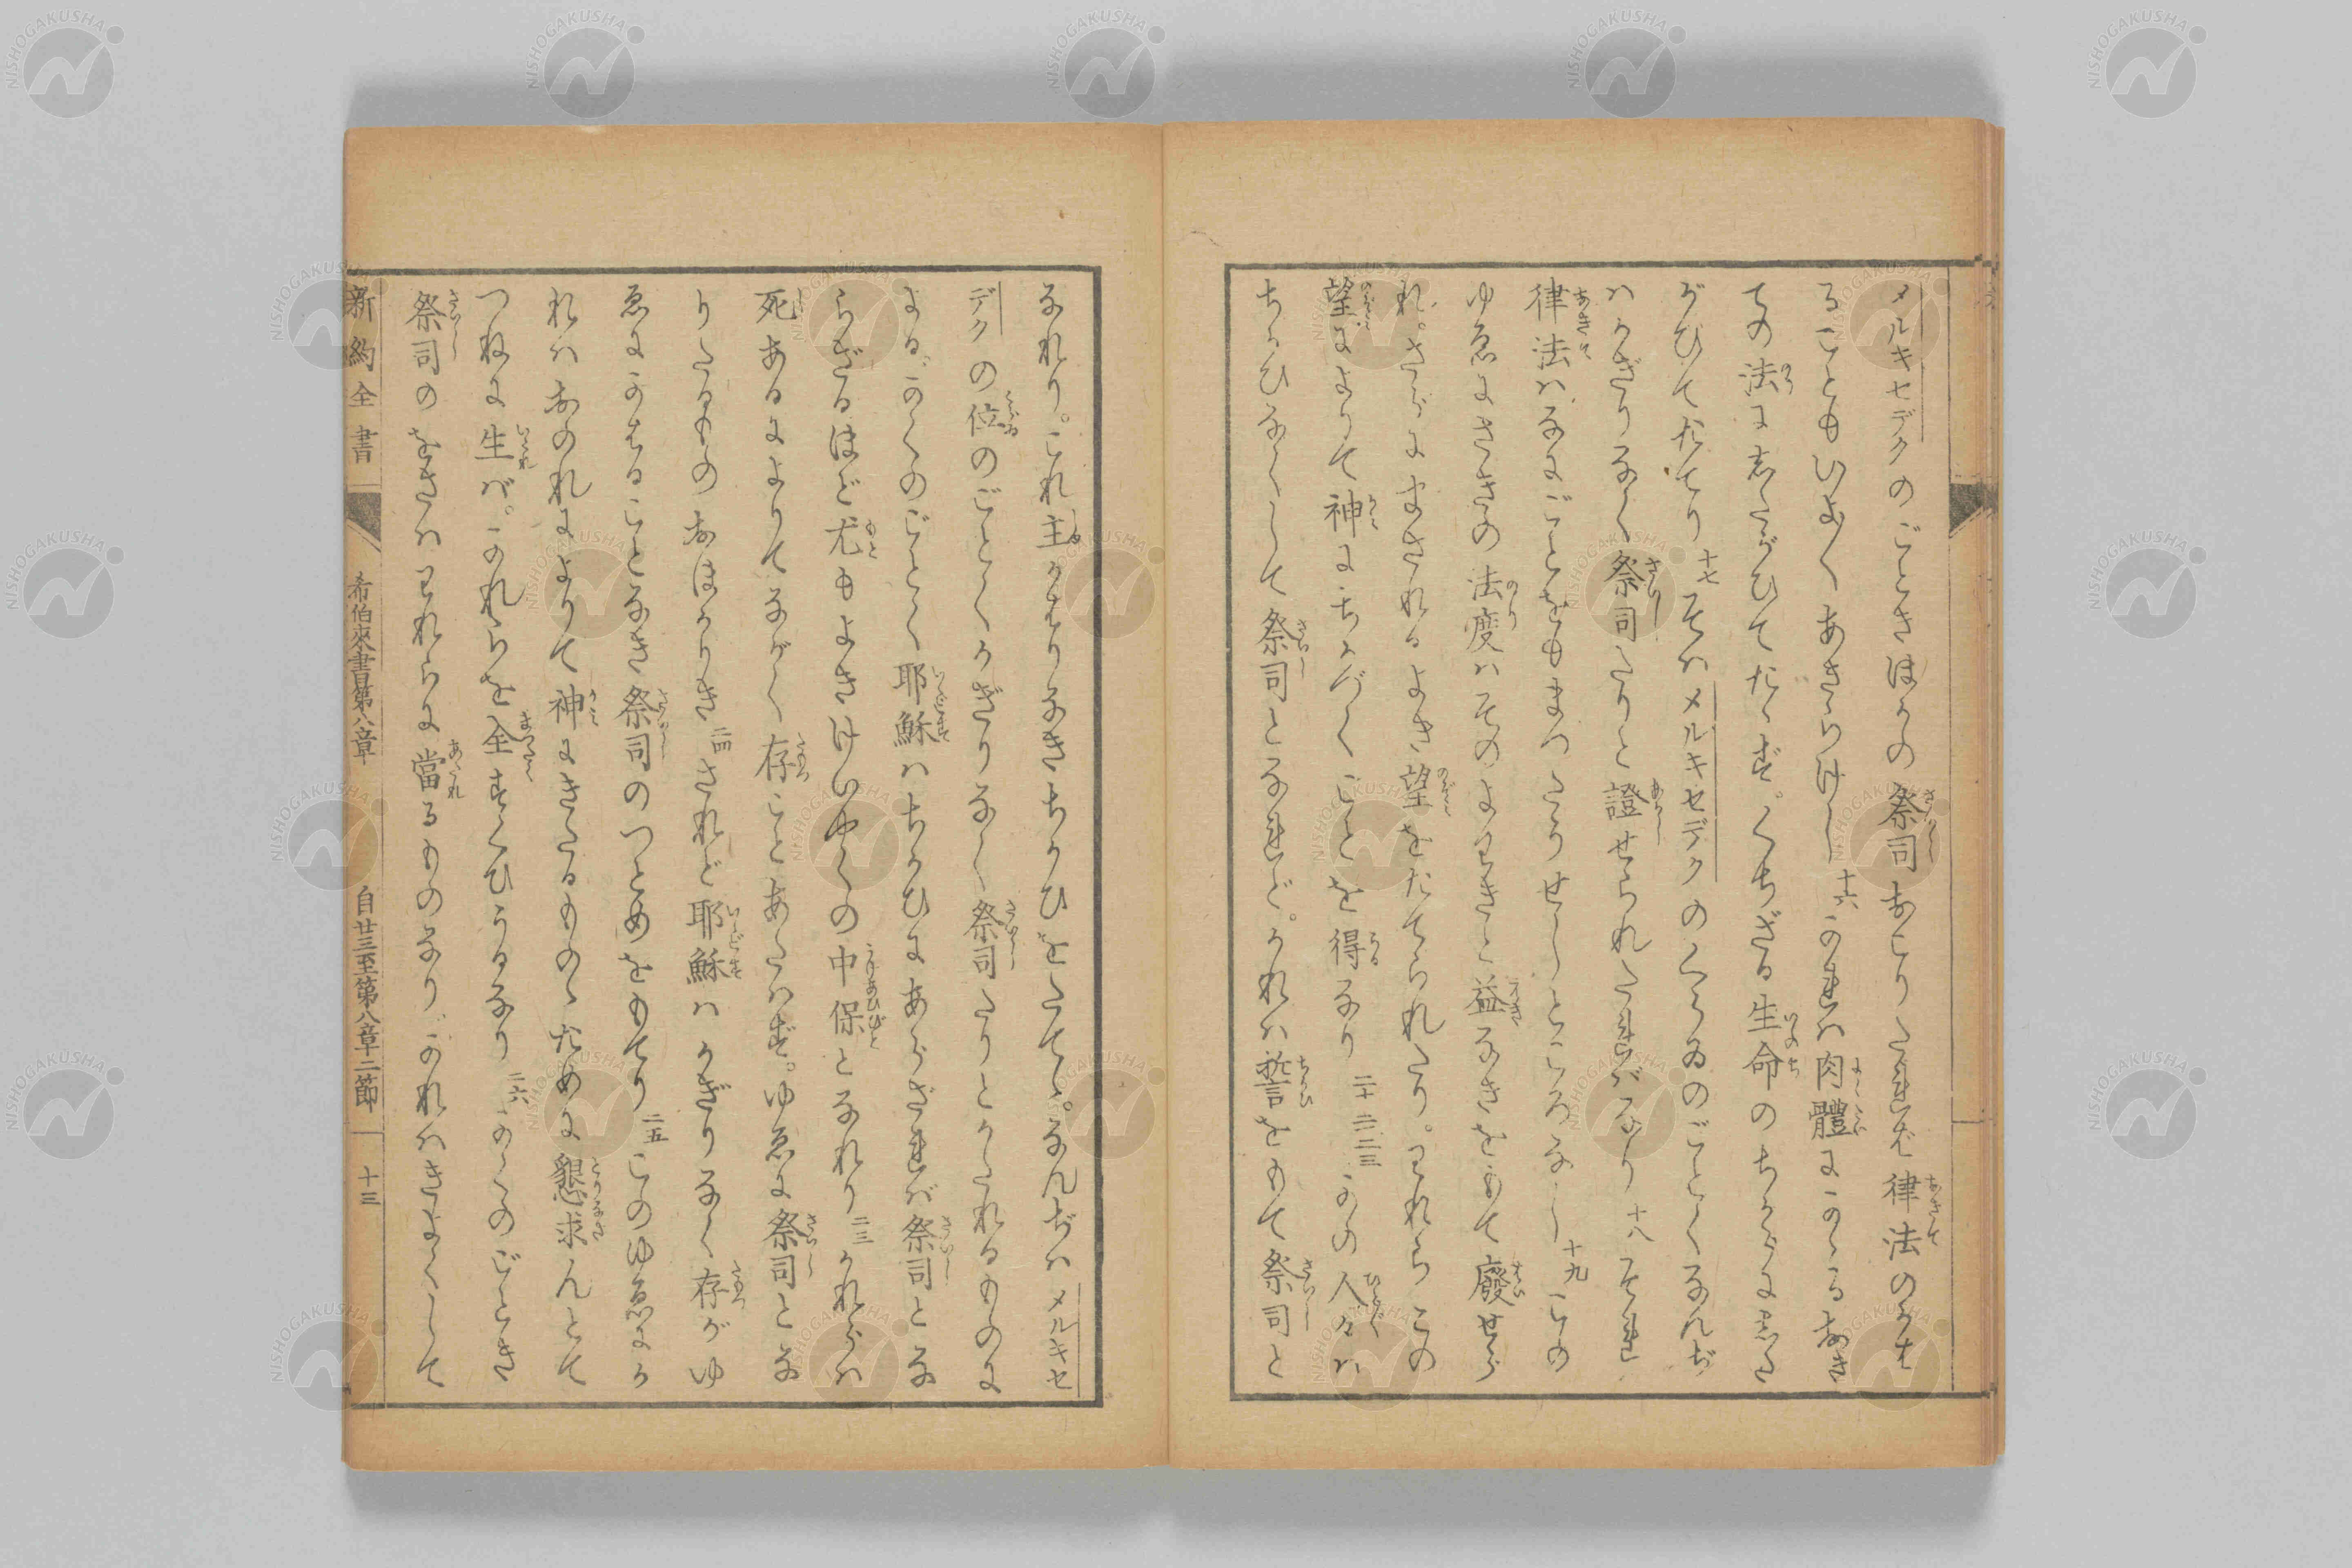 メルキセデクのごときほかの祭司おこりたれば律法のかは
ることもいよ〳〵あきらけし十六これは肉體にかゝるおき
ての法にしたがひてたゝず。くちざる生命のちからにした
がひてたてり十七そはメルキセデクのくらゐのごとくなんぢ
はかぎりなく祭司たりと證せられたればなり十八それ
律法はなにごとをもまつたうせしところなし十九この
ゆゑにさきの法度はそのよわきと益なきをもて廢せら
れ。さらにまされるよき望をたてられたり。われらこの
望によりて神にちかづくことを得るなり二十二一二三かの人々は
ちかひなくして祭司となれど。かれは誓をもて祭司と
なれり。これ主かはりなきちかひをたてゝ。なんぢはメルキセ
デクの位のごとくかぎりなく祭司たりとかたれるものに
よる。かくのごとく耶穌はちかひにあらざれば祭司とな
らざるほど尤もよきけいやくの中保となれり二三かれらは
死あるによりてながく存ことあたはず。ゆゑに祭司とな
りたるものおほかりき二四されど耶穌はかぎりなく存がゆ
ゑにかはることなき祭司のつとめをもてり二五このゆゑにか
れはおのれによりて神にきたるものゝために懇求んとて
つねに生れば。かれらを全すくひうるなり二六かくのごとき
祭司のをきはわれらに當るものなり。かれはきよくして
新約全書
希伯來書第八章
自廿三至第八章二節
十三